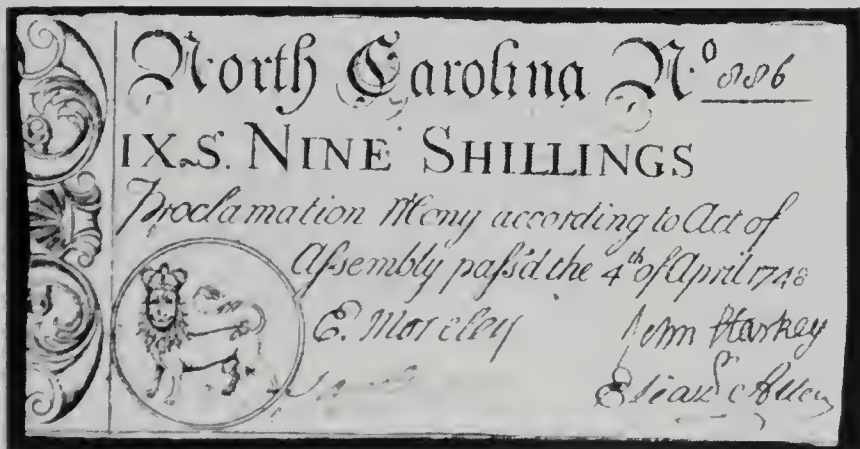 North Carolina Nº 886
IX.S. NINE SHILLINGS
Proclamation Mony according to Act of
Assembly pass'd the 4th of April 1748
E. Moseley John Starkey
Eleaz: Allen